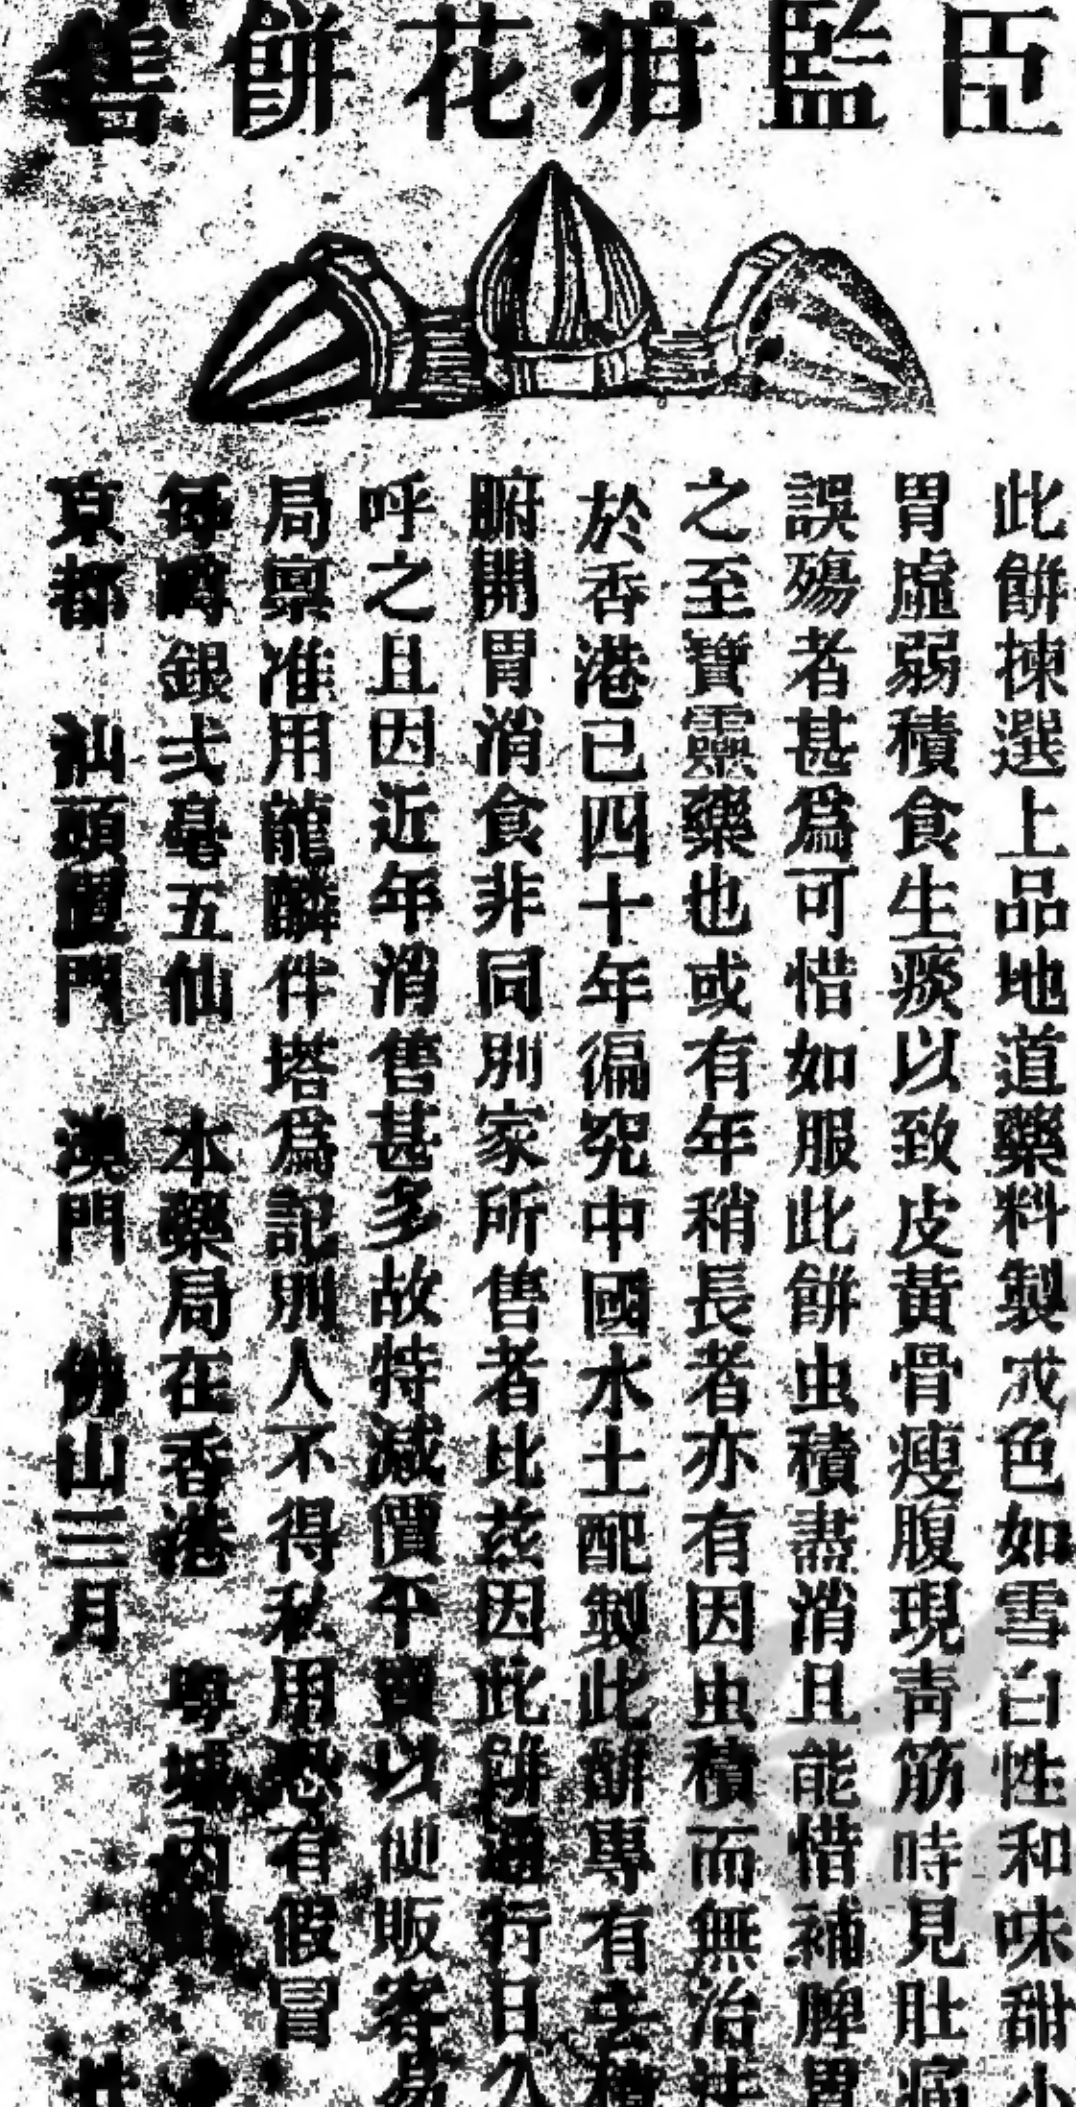 臣監疳花餅售
此餅揀選上品地道藥料製成色如雪白性和味甜小
胃虛弱積食生痰以致皮黃骨瘦腹現青筋時見肚痛
誤殤者甚為可惜如服此餅虫積盡消且能惜補脾胃
之至寶靈藥也或有年稍長者亦有因虫積而無治法
於香港已四十年徧究中國水土配製此餅專有去積
腑開胃消食非同別家所售者比茲因此餅通行日久
呼之且因近年消售甚多故特減價平賣以便販客易
局禀准用龍麟伴塔為記別人不得私用恐有假冒
每樽銀弍毫五仙 本藥局在香港 粵城內
京都 汕頭廈門 澳門 佛山 三月